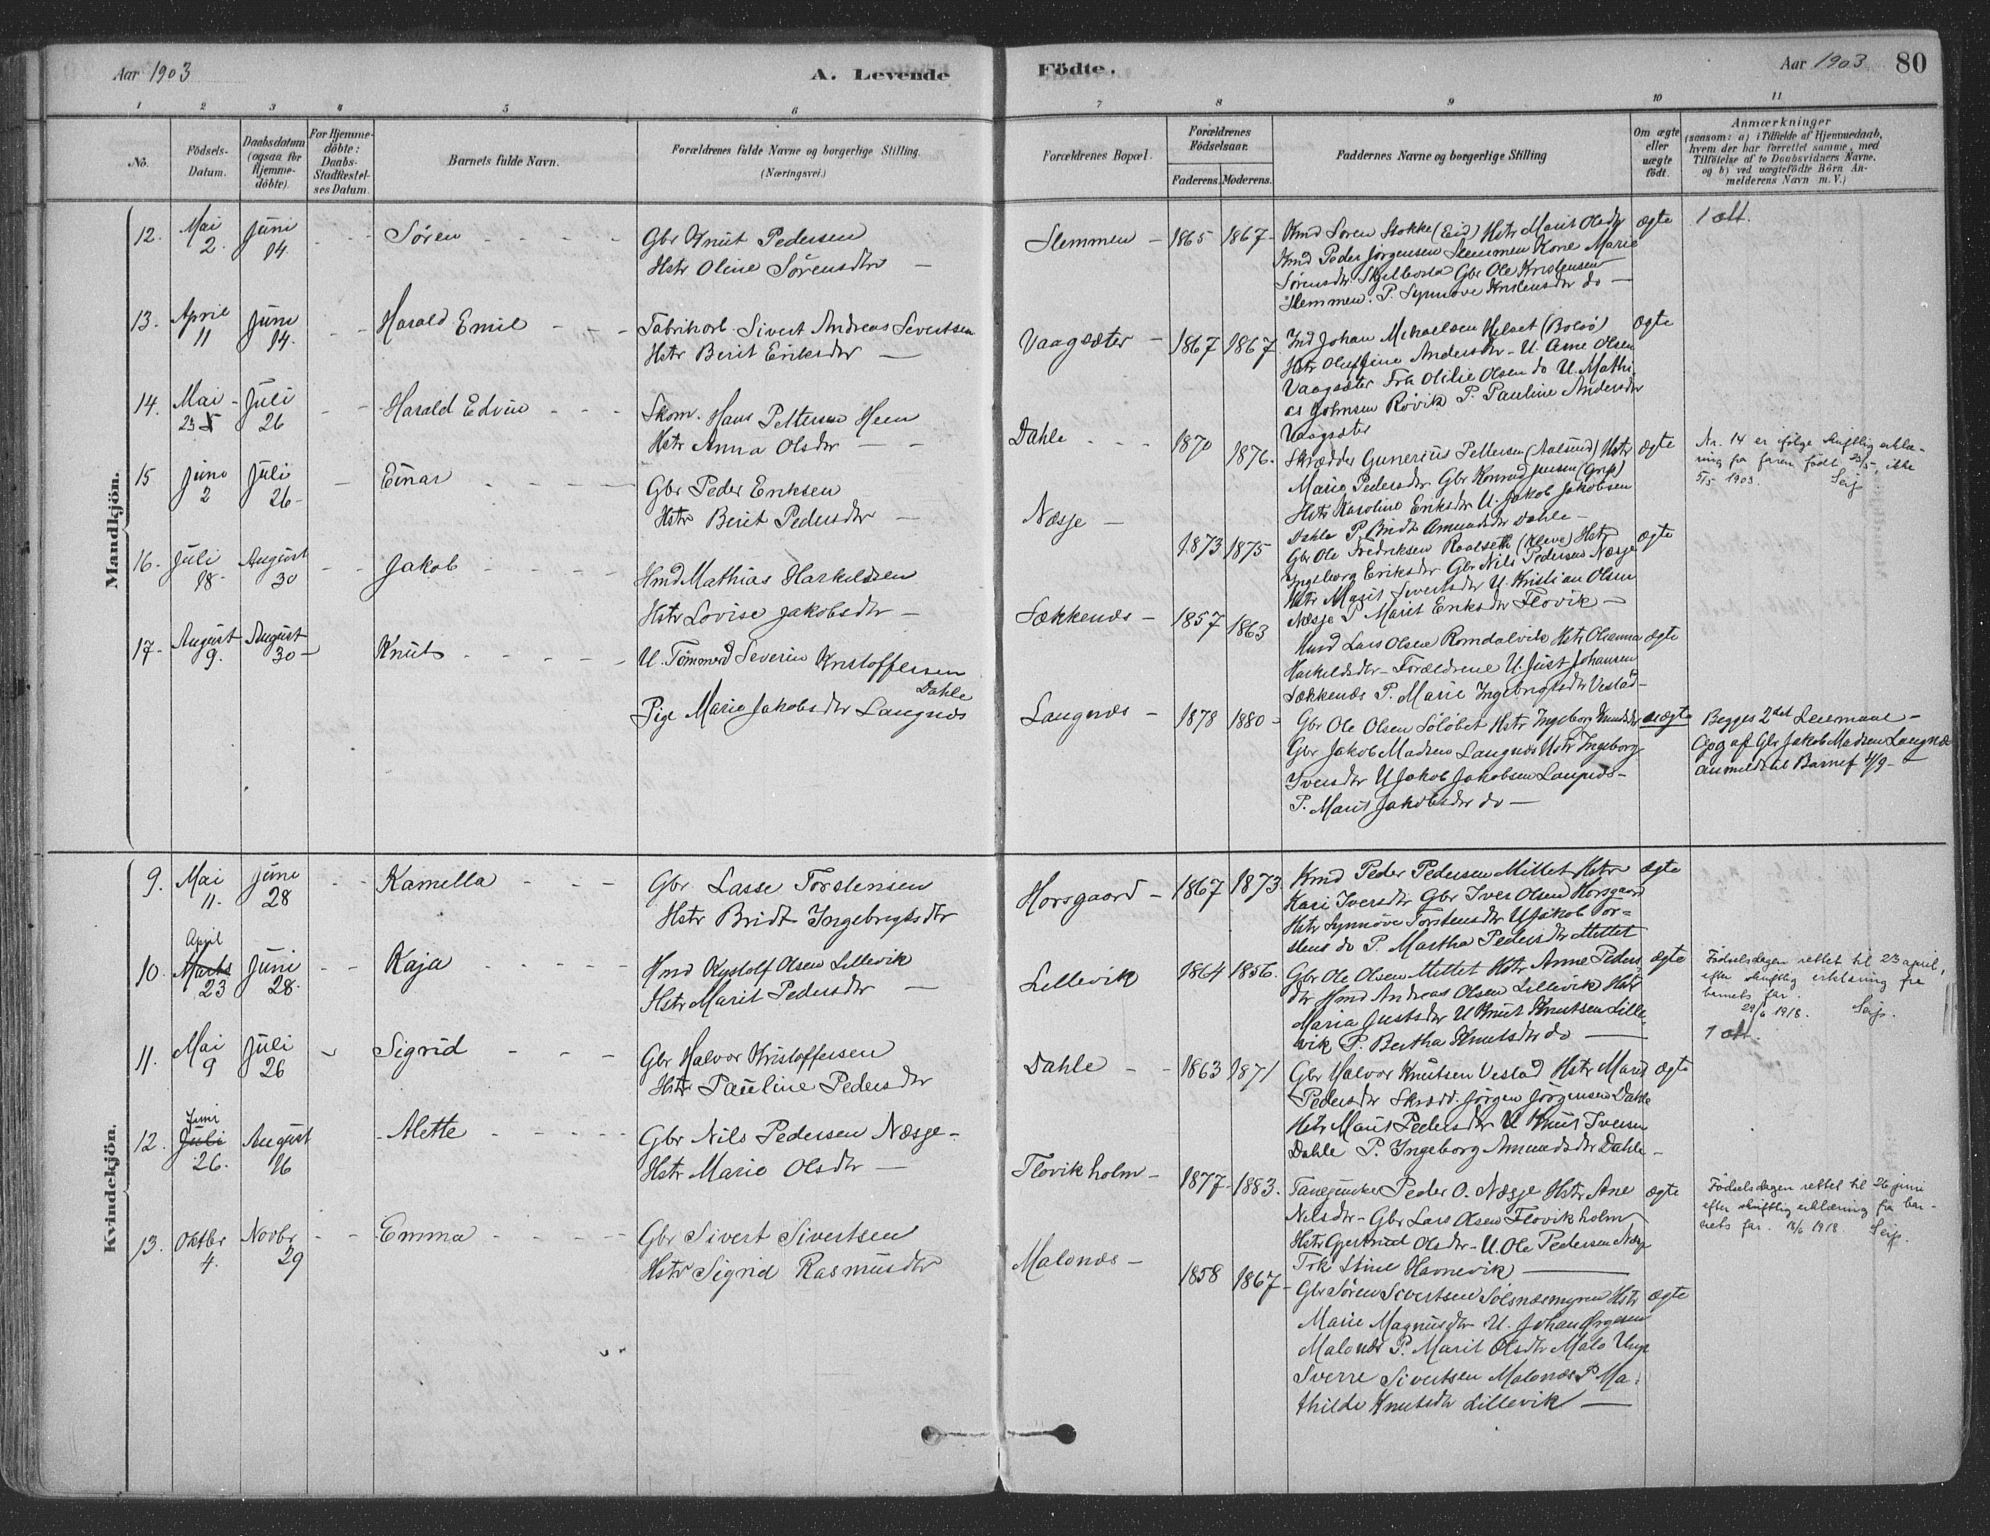 Aar 1903
A. Levende
Födte.
Aar 1903
80
1 2 3 4 5 6 7 8 9 10 11
No.
Födsels-
Datum.
Daabsdatum
(ogsaa for
Hjemme-
döbte).
For Hjemme-
döbte:
Daabs-
Stadfæstel-
ses Datum.
Barnets fulde Navn.
Forældrenes fulde Navne og borgerlige Stilling.
(Næringsvei.)
Forældrenes Bopæl.
Forældrenes
Födselsaar.
Faderens. Moderens.
Faddernes Navne og borgerlige Stilling
Om ægte
eller
uægte
födt.
Anmærkninger
(saasom: a) i Tilfælde af Hjemmedaab,
hvem der har forrettet samme, med
Tilföielse af to Daabsvidners Navne,
og b) ved uægtefödte Börn An-
melderens Navn m. V.)
Mandkjön.
12. Mai 2. Juni 14. Sören
Gbr Knut Pedersen
Hstr Oline Sörensdtr
Slemmen 1865 1867
Kmd Sören Stokke (Eid) Hstr Marit Olsdtr
Kmd Peder Jörgensen Slemmen Kone Marie
Sörensdtr Skjelbosta Gbr Ole Kristensen
Slemmen. P. Synnöve Kristensdtr do
ægte
1 att.
13. April 11 Juni 14. Harald Emil
Fabrikarb. Sivert Andreas Severtsen
Hstr Berit Eriksdtr
Vaagsæter 1867 1867
Ind Johan Mikaelsen Helset (Bolsö)
Hstr Oluffine Andersdtr - U. Arne Olsen
Vaagsæter Frk Otilie Olsen do U. Mathi
as Johnsen Rövik P. Pauline Andersdtr
Vaagsæter
ægte
14. Mai 23 5 Juli 26 Harald Edvin
Skom. Hans Pettersen Heen
Hstr Anna Olsdtr
Dahle 1870 1876.
Skrædder Gunerius Pettersen (Aalsund) Hstr
Marie Pedersdtr Gbr Konrad Jensen (Grip)
Hstr Karoline Eriksdtr U. Jakob Jakobsen
Dahle P. Bridt Amundsdtr Dahle
ægte
Nr. 14 er ifölge skriftlig erklæ-
ring fra faren födt 23/5, ikke
5/5 1903.
15 Juni 2 Juli 26 Einar
Gbr Peder Eriksen
Hstr Berit Pedersdtr
Næsje 1873 1875
Gbr Ole Fredriksen Roalset (Kleve) Hstr
Ingeborg Eriksdtr Gbr Nils Pedersen Næsje
Hstr Marit Sivertsdtr U. Kristian Olsen
Næsje P Marit Eriksdtr Flovik
ægte
16. Juli 18. August 30 Jakob
Hmd Mathias Harkeldsen
Hstr Lovise Jakobsdtr
Sækkenæs 1857 1863
Husd Lars Olsen Romdalvik Hstr Olianna
Harkeldsdtr - Forældrene U. Just Johansen
Sækkenæs P. Marie Ingebrigtsdtr Vestad
ægte
17 August 9. August 30 Knut
U. Tömmerd Severin Kristoffersen
Dahle
Pige Marie Jakobsdtr Langnes
Langnæs 1878 1880
Gbr Ole Olsen Solöbet Hstr Ingeborg Knudsdtr
Gbr Jakob Madsen Langnæs Hstr Ingeborg
Iversdtr U Jakob Jakobsen Langnæs
P. Marit Jakobsdtr do
uægte
Begges 2det Leiermaal
Opg af Gbr Jakob Madsen Langnæs
anmeldt til Barnef 1/9
Kvindekjön.
9. Mai 11. Juni 28 Kamella
Gbr Lasse Torstensen
Hstr Bridt Ingebrigtsdtr
Horsgaard 1867 1873.
Kmd Peder Pedersen Mittet Hstr
Kari Iversdtr Gbr Iver Olsen Horsgaard
Hstr Synnöve Torstensdtr U Jakob Tor-
stens do P. Martha Pedersdtr Mittet
ægte
10. April Marts 23 Juni 28. Kaja
Hmd Kystolf Olsen Lillevik
Hstr Marit Pedersdtr
Lillevik 1864 1856.
Gbr Ole Olsen Mittet Hstr Anne Peders
dtr Hmd Andreas Olsen Lillevik Hstr
Maria Justsdtr U Knut Knutsen Lille
vik P. Bertha Knutsdtr do
ægte
Födselsdagen rettet til 23 april,
efter skriftlig erklæring fra
barnets far.
29/6 1918.
11. Mai 9 Juli 26 Sigrid
Gbr Halvor Kristoffersen
Hstr Pauline Pedersdtr
Dahle 1863 1871
Gbr Halvor Knutsen Vestad Hstr Marit
Pedersdtr Skræd. Jörgen Jörgensen Dahle
Hstr Marit Pedersdtr U Knut Iversen
Dahle P. Ingeborg Amundsdtr Dahle
ægte
1 att.
12. Juni Juli 26. August 16 Alette
Gbr Nils Pedersen Næsje
Hstr Marie Olsdtr
Flovikholm 1877 1883.
Peder O. Næsje Hstr Ane
Nilsdtr - Gbr Lars Olsen Flovikholm
Hstr Gjertrud Olsdtr - U. Ole Pedersen Næsje
Frk Stine Havnevik
ægte
Födselsdagen rettet til 26 juni
efter skriftlig erklæring fra bar-
nets far. 1918.
13. Oktbr 4. Novbr 29 Emma
Gbr Sivert Sivertsen
Hstr Sigrid Rasmusdtr
Malonæs 1858 1867
Gbr Sören Sivertsen Solsnæsmyren Hstr
Marie Magnusdtr U. Johan
Malonæs P. Marit Olsdtr Malo Ung
Sverre Sivertsen Malonæs P Ma-
thilde Knutsdtr Lillevik
ægte